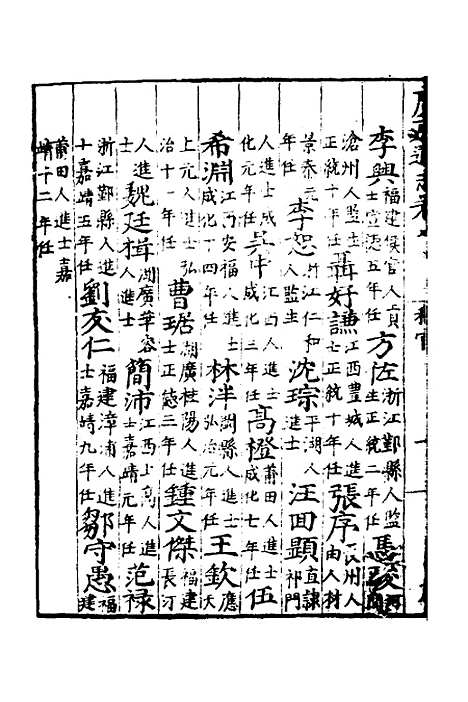 李興福建候官人貢士宣德五年任 方佐浙江鄞縣人監生正統二年任 馮
滄州人監生正統十年任 聶好謙江西豐城人進士正統十年任 張序州人由人材
景泰元年任 李恕浙江仁和人監生 沈琮平湖人進士 汪回顯直隸祁門
人進士成化元年任 吳中江西人進士成化三年任 高橙莆田人進士成化七年任 伍
希淵江西安福人進士成化十四年任 林泮閩縣人進士弘治元年任 王欽應天
上元人進士弘治十一年任 曹琚湖廣桂陽人進士正德三年任 鍾文傑福建長汀
人進士 魏廷楫湖廣華容人進士 簡沛江西上高人進士嘉靖元年任 范祿
浙江鄞縣人進士嘉靖五年任 劉友仁福建漳浦人進士嘉靖九年任 鄒守愚福建
莆田人進士嘉靖十二年任